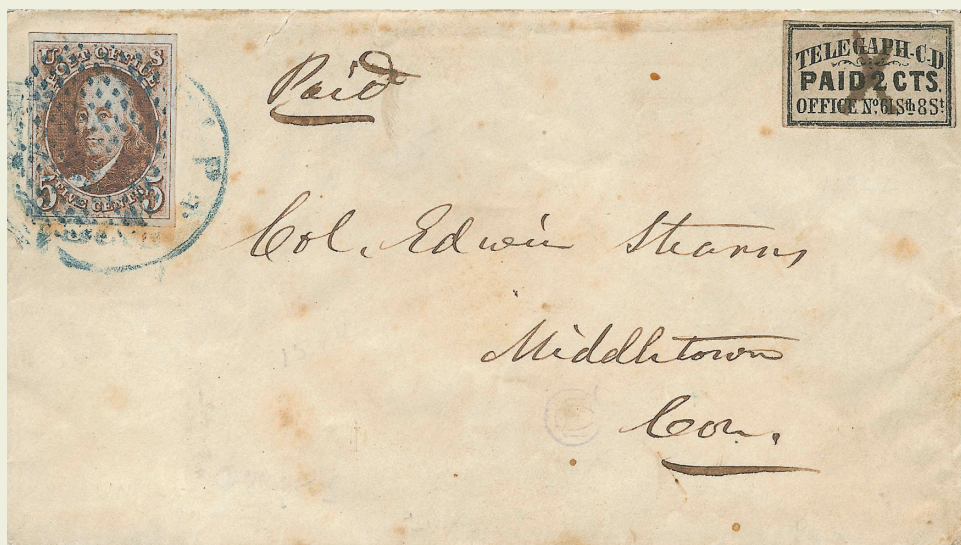 U S
POST OFFICE
FIVE CENTS
5 5
Paid
TELEGAPH-C.D
PAID 2 CTS.
OFFICE No. 61 Sth 8 St
Col. Edwin Stearns
Middletown
Con.